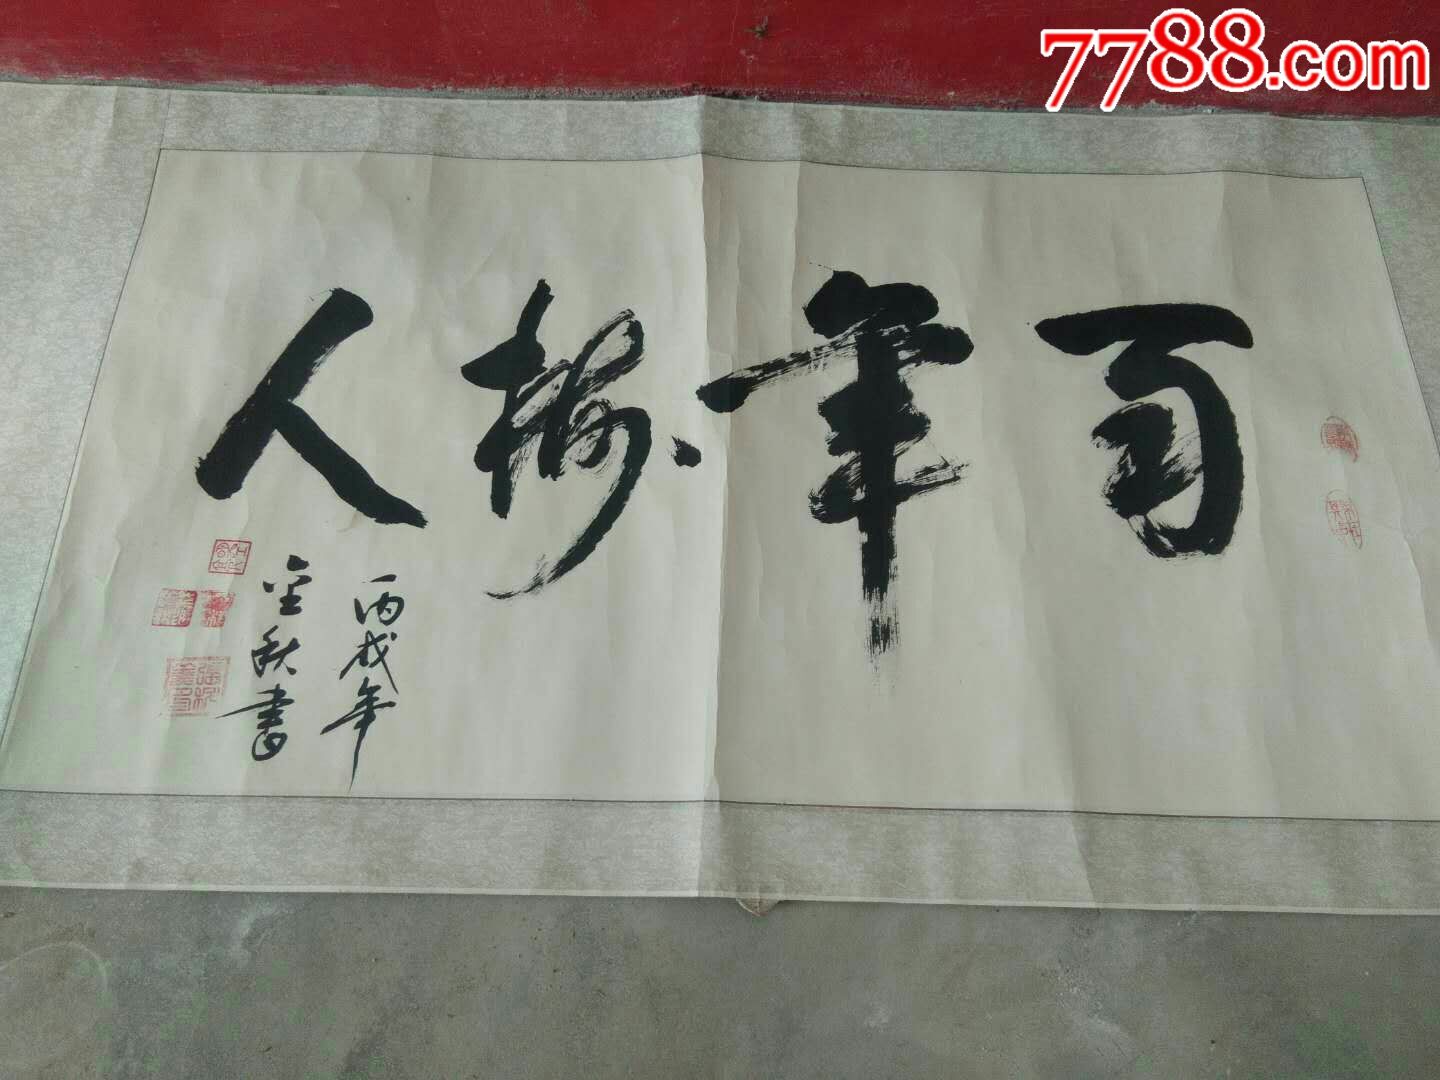 7788.com
百年树人
丙戌年
金秋书